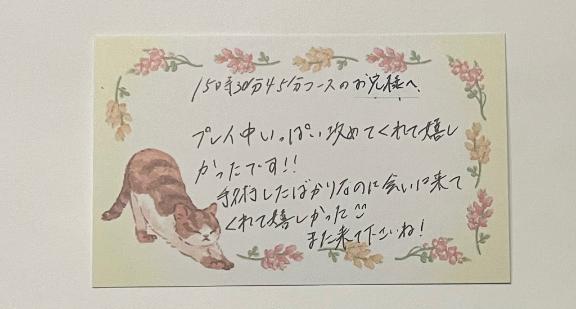 15時30分45分コースのお兄様へ
プレイ中いっぱい攻めてくれて嬉し
かったです!!
したばかりなのに会いに来て
くれて嬉しかった
また来て下さいね!